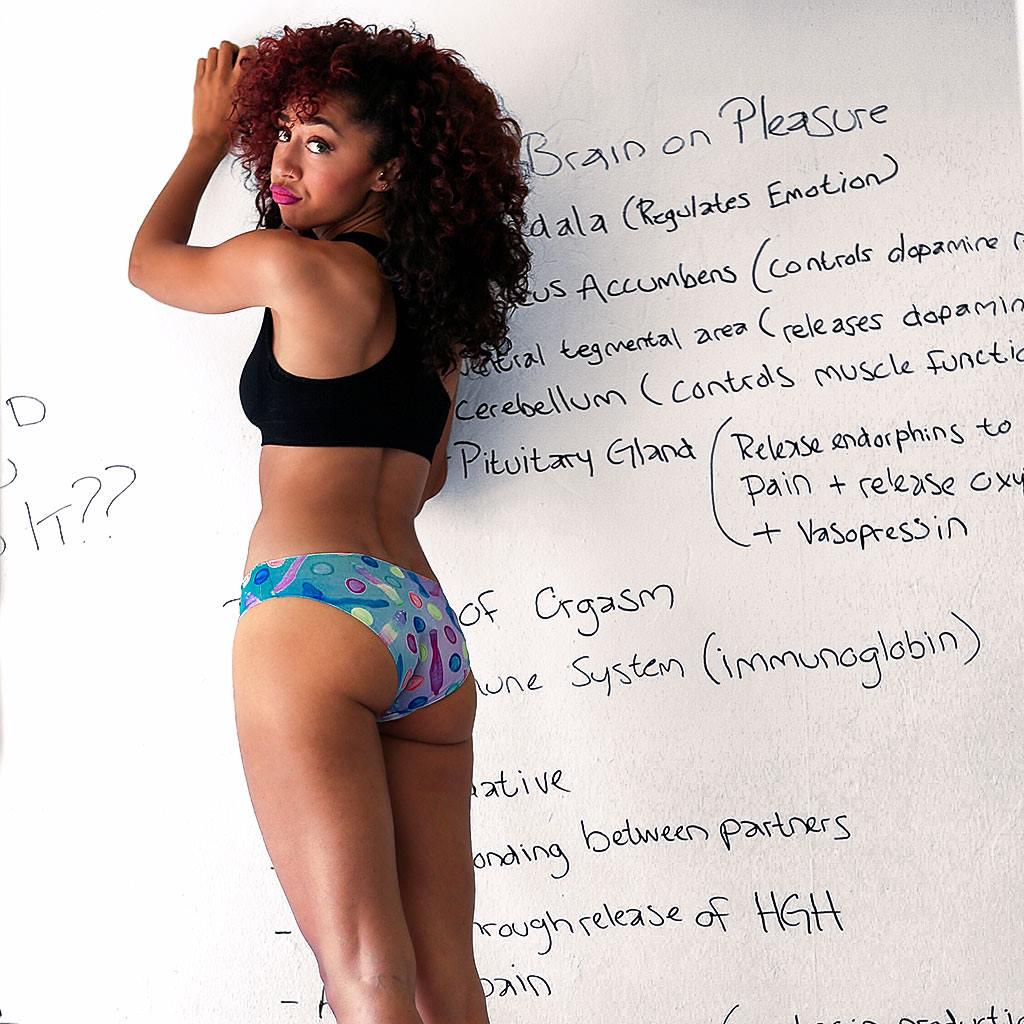 D
IT??
Brain on Pleasure
dala (Regulates Emotion)
us Accumbens (controls dopamine r
ventral tegmental area (releases dopamin
cerebellum (controls muscle functio
Pituitary Gland (Release endorphins to
pain + release oxy
+ Vasopressin
of Orgasm
une System (immunoglobin)
ative
onding between partners
- hrough release of HGH
- pain